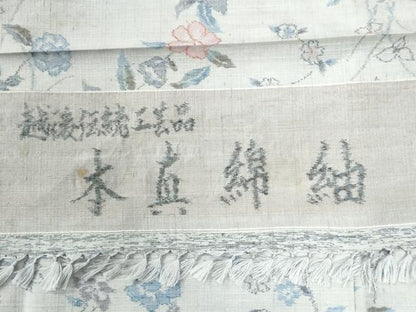 越後伝統工芸品
本真綿紬